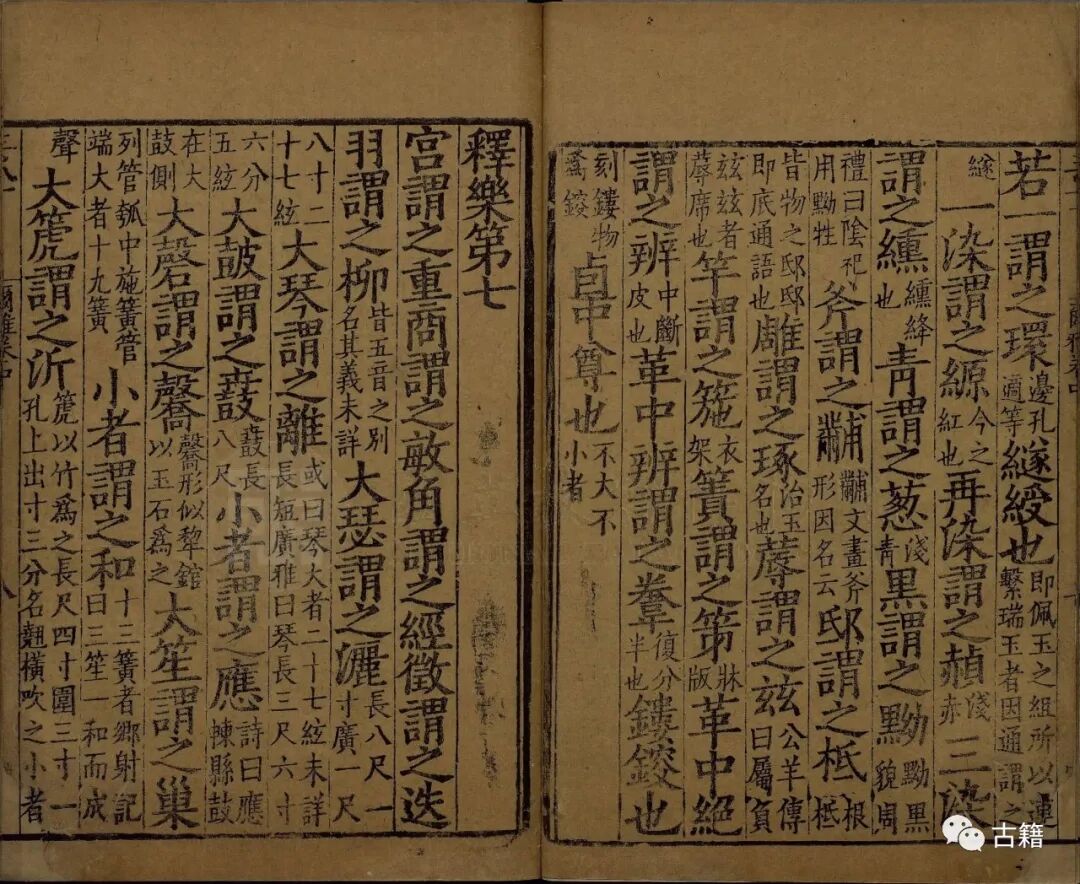 若一謂之環邊孔適等繸綬也即佩玉之組所以連繫瑞玉者因通謂之
繸一染謂之縓今之紅也再染謂之赬淺赤三染
謂之纁纁絳也青謂之葱淺青黑謂之黝黝黑貌周
禮曰陰祀用黝牲斧謂之黼黼文畫斧形因名云邸謂之柢根柢
皆物之邸邸即底通語也雕謂之琢治玉名也蓐謂之茲公羊傳曰屬負
茲茲者蓐席也竿謂之箷衣架簀謂之笫牀版革中絕
謂之辨中斷皮也革中辨謂之韏復分半也鏤鋑也
刻鏤物為鋑卣中尊也不大不小者
釋樂第七
宮謂之重商謂之敏角謂之經徵謂之迭
羽謂之柳皆五音之別名其義未詳大瑟謂之灑長八尺一寸廣一尺
八寸二十七絃大琴謂之離或曰琴大者二十七絃未詳長短廣雅曰琴長三尺六寸
六分五絃大鼓謂之鼖鼖長八尺小者謂之應詩曰應朄縣鼓
在大鼓側大磬謂之毊毊形似犂錧以玉石為之大笙謂之巢
列管瓠中施簧管端大者十九簧小者謂之和十三簧者鄉射記曰三笙一和而成
聲大篪謂之沂篪以竹爲之長尺四寸圍三寸一孔上出寸三分名翹橫吹之小者
古籍